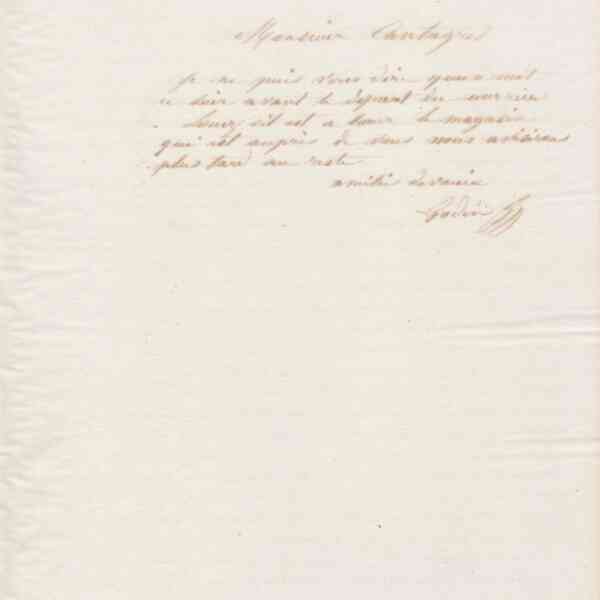 Monsieur Cantagrel
Je ne puis vous dire qu'un mot
ce soir avant le départ du courrier
Louez s'il est a louer le magasin
qui est auprès de vous nous aviserons
plus tard au reste
amitiés devouées
Godin